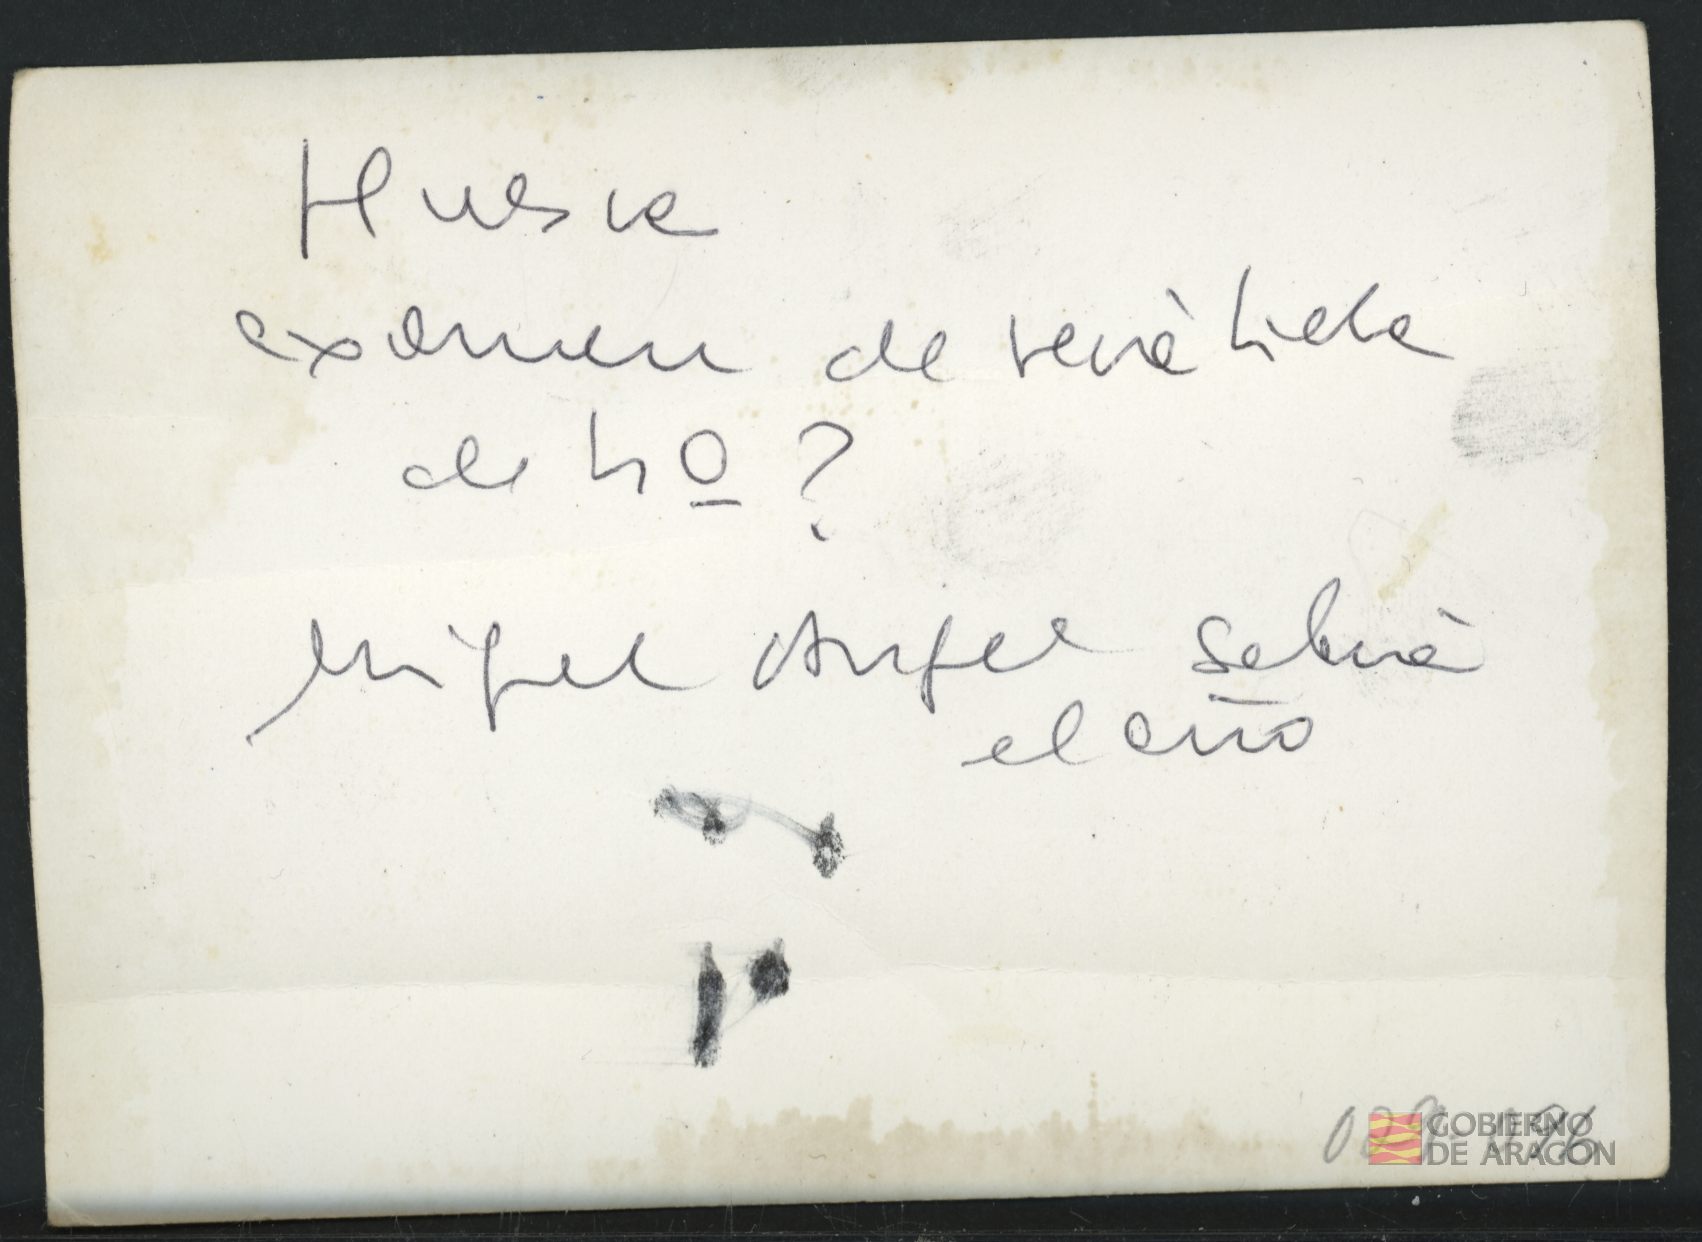 Huesca
examen de reválida
de 4º ?
Miguel Angel sabrá
el año
GOBIERNO
DE ARAGON